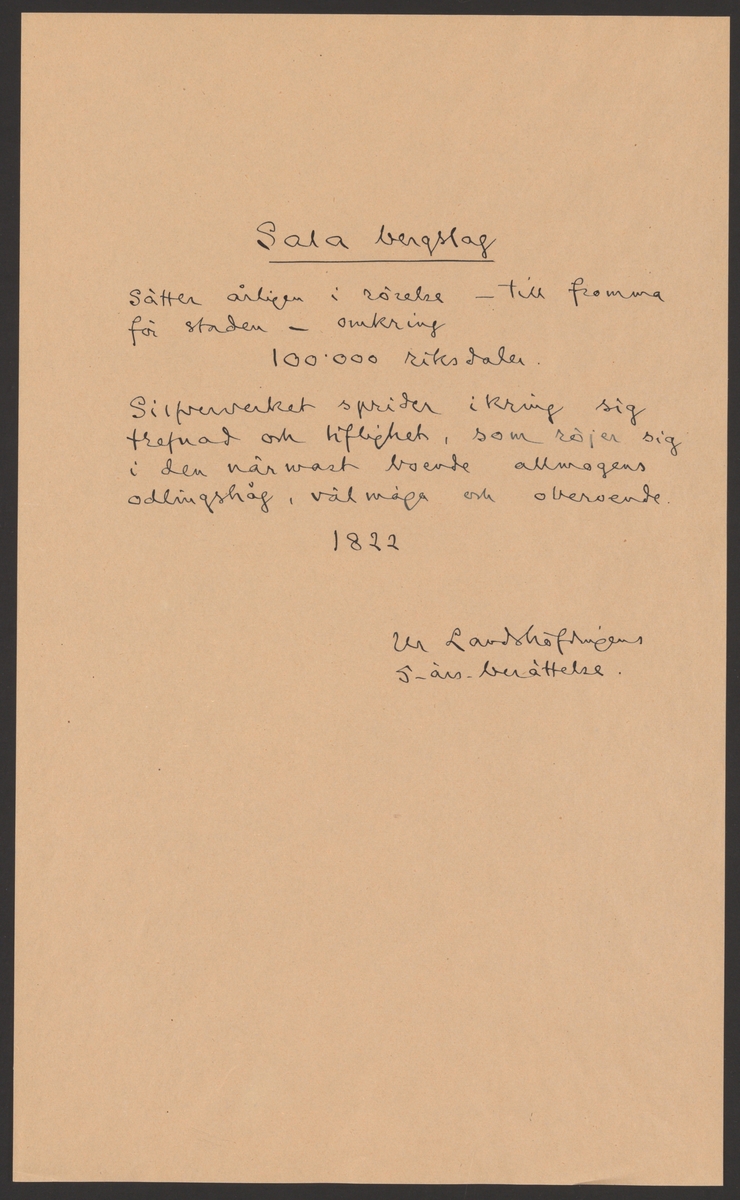 Sala bergslag
Sätter årligen i rörelse – till fromma
för staden – omkring
100.000 riksdaler.
Silfververket sprider ikring sig
trefnad och liflighet, som röjer sig
i den närmast boende allmogens
odlingshåg, välmåga och oberoende.
1822
Ur Landshöfdingens
5-års-berättelse.